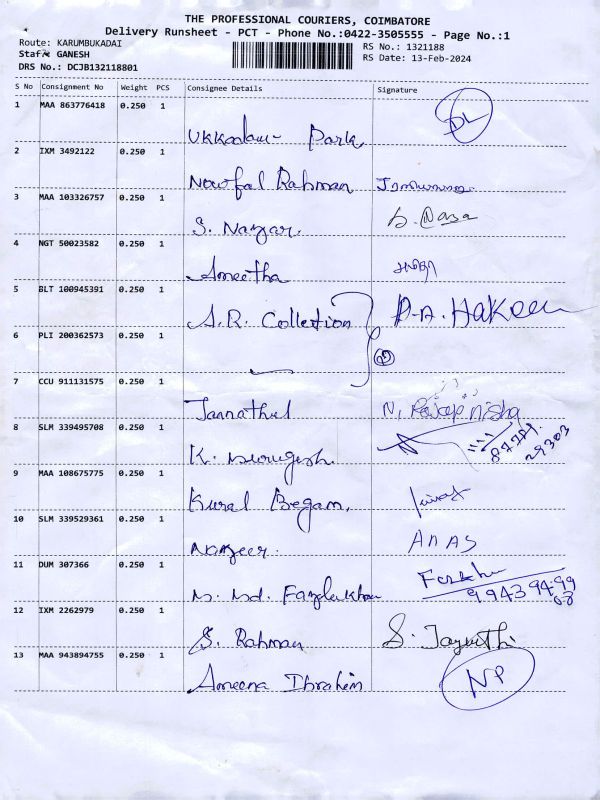 THE PROFESSIONAL COURIERS, COIMBATORE
Delivery Runsheet - PCT - Phone No.:0422-3505555 - Page No.:1
Route: KARUMBUKADAI
RS No.: 1321188
Staff: GANESH
RS Date: 13-Feb-2024
DRS No.: DCJB132118801
S No Consignment No Weight PCS Consignee Details Signature
1 MAA 863776418 0.250 1 Ukkadam Park DL
2 IXM 3492122 0.250 1 Nowfal Rahman
3 MAA 103326757 0.250 1 S. Nayar.
4 NGT 50023582 0.250 1 Ameetha
5 BLT 100945391 0.250 1 A.R. Collection P.A. HAKEEM
6 PLI 200362573 0.250 1 2
7 CCU 911131575 0.250 1 Jannathul N.
8 SLM 339495708 0.250 1 K. Murugesh.
9 MAA 108675775 0.250 1 Kural Begam.
10 SLM 339529361 0.250 1 Nazeer. ANAS
11 DUM 307366 0.250 1 M. Md.
12 IXM 2262979 0.250 1 S. Rahman S. Jayanthi
13 MAA 943894755 0.250 1 Ameena Ibrahim NP